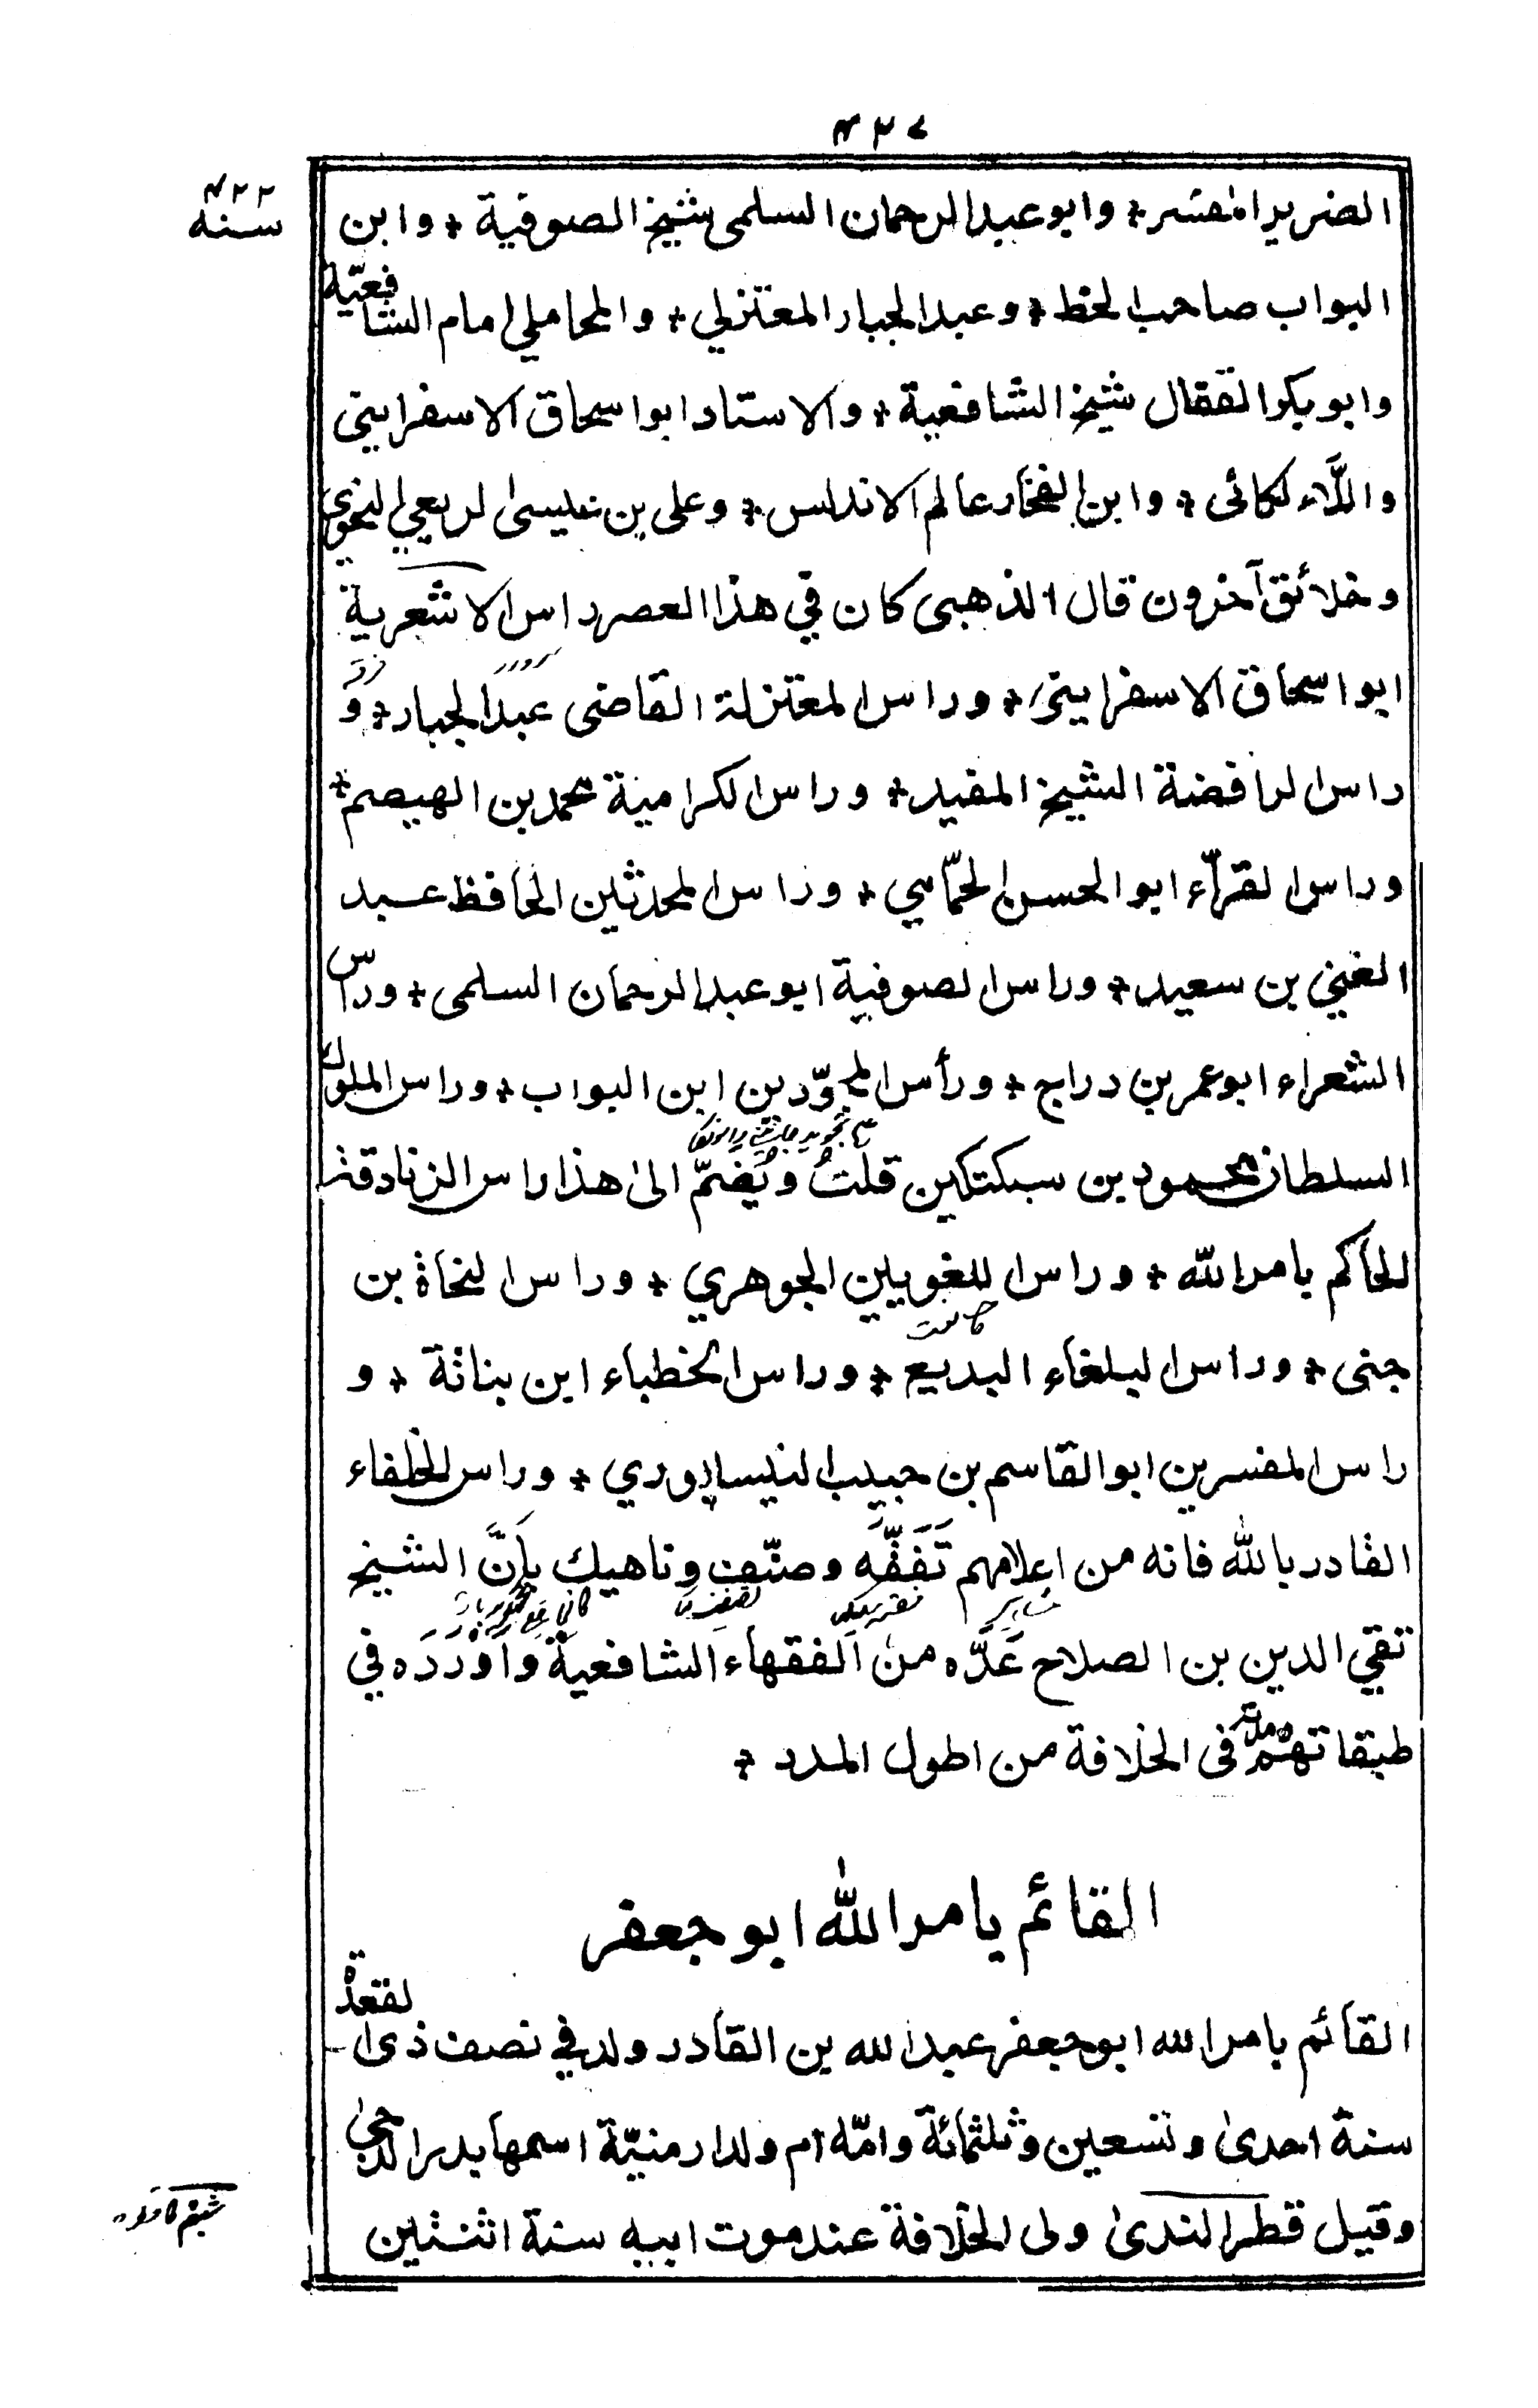 ٤٢٧
سنة ٤٢٢
الضرير المفسر * وابو عبد الرحمان السلمى شيخ الصوفية * وابن
البواب صاحب الخط * وعبد الجبار المعتزلي * والمحاملي امام الشافعيّة
وابو بكر القفال شيخ الشافعية * والاستاد ابو اسحاق الاسفرايينى
واللّاءلكائى * وابن الفخار عالم الاندلس * وعلى بن عيسى الربعي النحوي
وخلائق آخرون قال الذهبى كان في هذا العصر راس الاشعرية
ابو اسحاق الاسفرايينى * وراس المعتزلة القاضى عبد الجبار * و
راس الرافضة الشيخ المفيد * وراس الكرامية محمد بن الهيصم *
وراس القرّاء ابو الحسن الحمّامي * وراس المحدثين الحافظ عبد
الغني بن سعيد * وراس الصوفية ابو عبد الرحمان السلمى * وراس
الشعراء ابو عمر بن دراج * ورأس المجوّدين ابن البواب * وراس الملوك
السلطان محمود بن سبكتكين قلتُ ويُضمّ الىٰ هذا راس الزنادقة
الحاكم بامر الله * وراس اللغويين الجوهري * وراس النحاة بن
جنى * وراس البلغاء البديع * وراس الخطباء ابن بناتة * و
راس المفسرين ابو القاسم بن حبيب النيسابوري * وراس الخلفاء
القادر بالله فانه من اعلامهم تَفَقَّهَ وصنّف وناهيك بِأنَّ الشيخ
تقي الدين بن الصلاح عَدَّه من الفقهاء الشافعية وَاَوْرَدَه في
طبقاتهم ومدته فى الخلافة من اطول المدد *
القائم بامر الله ابو جعفر
القائم بامر الله ابو جعفر عبد الله بن القادر ولد في نصف ذى القعدة
سنة احدىٰ وتسعين وثلثمائة وامّه ام ولد ارمنيّة اسمها بدر الدجىٰ
وقيل قطر الندىٰ ولى الخلافة عند موت ابيه سنة اثنتين